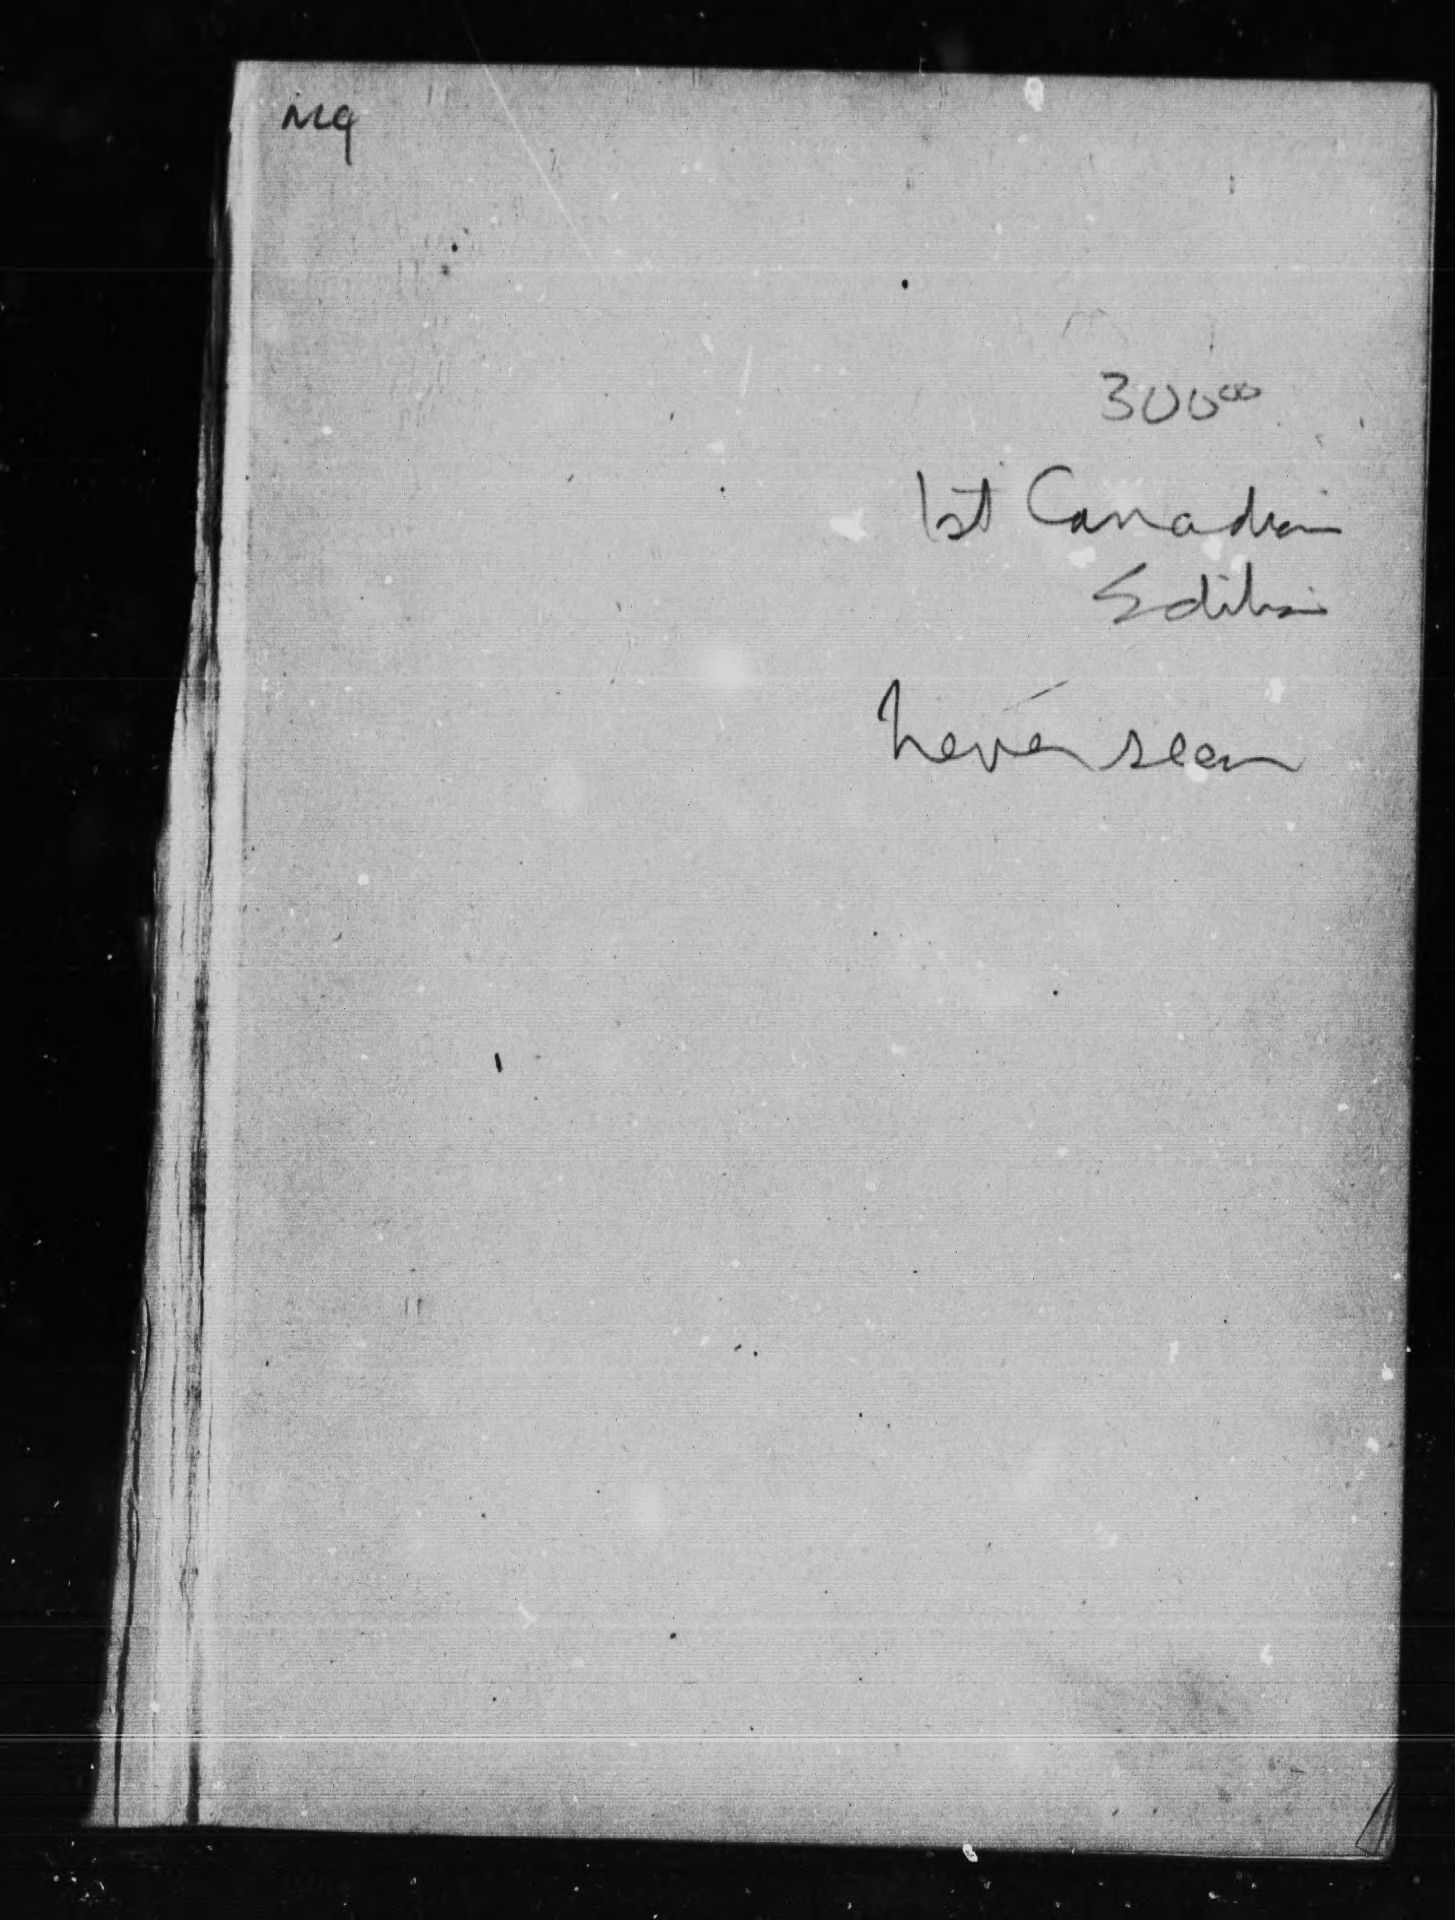 mq
300⁰⁰
1st Canadian
Edition
Never seen